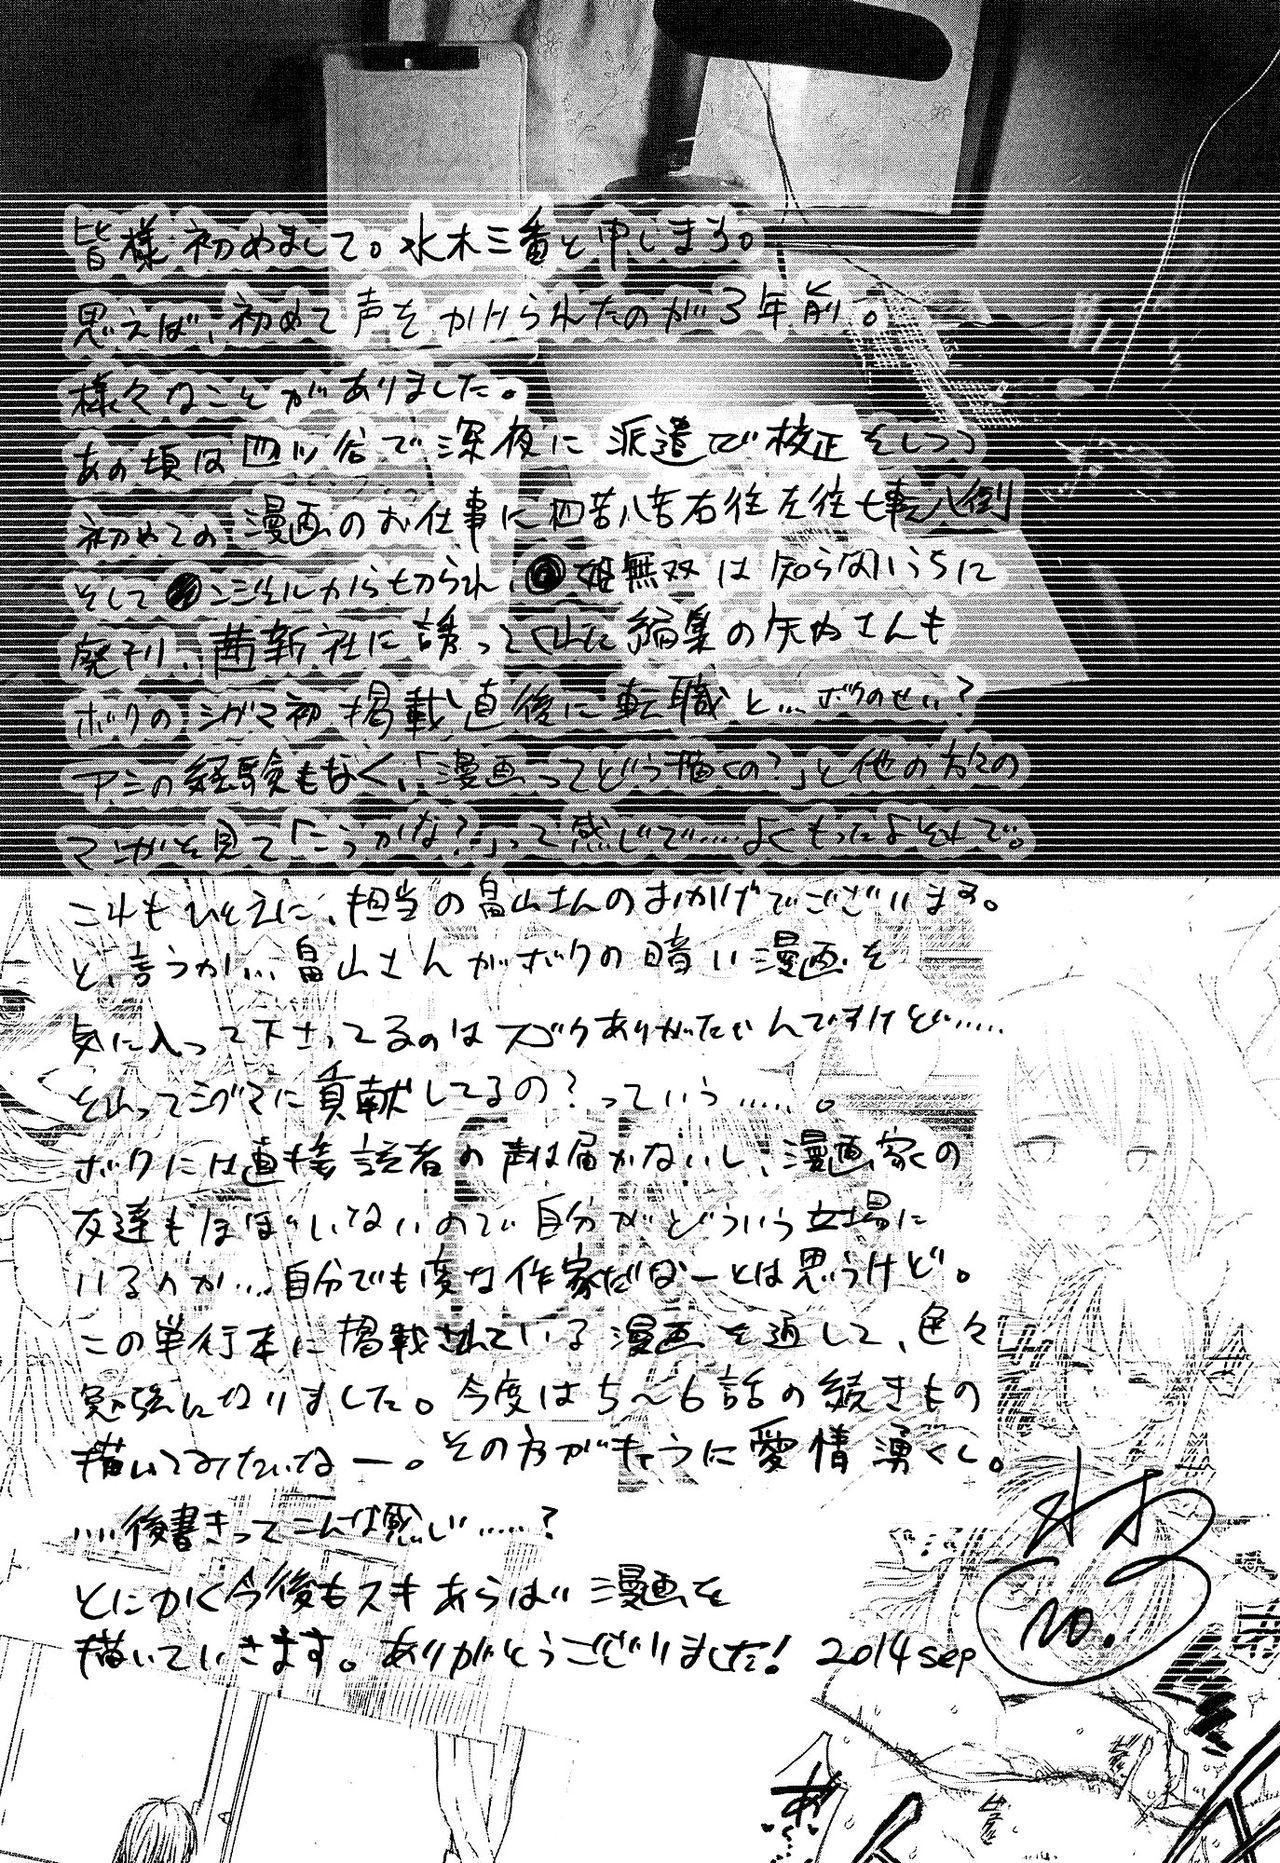 皆様初めまして。水木三番と申します。
思えば、初めて声をかけられたのが3年前。
様々なことがありました。
あの頃は四ツ谷で深夜に派遣で校正をしつつ
初めての漫画のお仕事に四苦八苦右往左往七転八倒
そして●ンジェルから切られ、●姫無双は知らないうちに
廃刊、茜新社に誘ってくれた編集の矢内さんも
ボクのシグマ初掲載直後に転職と…ボクのせい?
アシの経験もなく、「漫画ってどう描くの?」と他の方々の
マンガを見て「こうかな?」って感じで……よくもったよそれで。
これもひとえに、担当の畠山さんのおかげでございます。
と、言うか…畠山さんがボクの暗い漫画を
気に入って下さってるのはスゴクありがたいんですけど……
それってシグマに貢献してるの?っていう……。
ボクには直接読者の声は届かないし、漫画家の
友達もほぼいないので自分がどういう立場に
いるのか…自分でも変な作家だなーとは思うけど。
この単行本に掲載されている漫画を通して、色々
勉強になりました。今度は5〜6話の続きもの
描いてみたいなー。その方がキャラに愛情湧くし。
…後書きってこんな感じ……?
とにかく今後もスキあらば漫画を
描いていきます。ありがとうございました! 2014 sep
No.